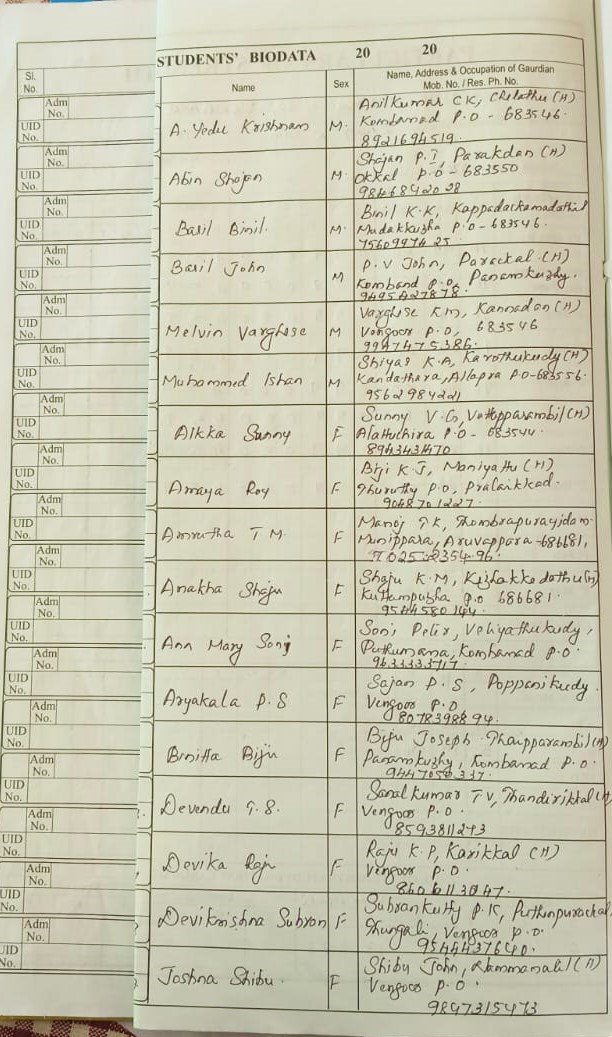 STUDENTS' BIODATA 20 20
Sl. No.
Name
Sex
Name, Address & Occupation of Gaurdian
Mob. No. / Res. Ph. No.
Adm No.
UID No.
A. Yedu Krishnan M.
Anilkumar C K, Chelathu (H)
Kombanad P.O - 683546.
8921694519
Adm No.
UID No.
Abin Shajan M
Shajan P. I, Parakdan (H)
Okkal P.O - 683550
9846842028
Adm No.
UID No.
Basil Binil. M.
Binil K.K,
Mudakkuzha P.O - 683546.
7560997425
Adm No.
UID No.
Basil John M
P. V John, Parackal (H)
Komband P.O, Panamkuzhy.
9495427878.
Adm No.
UID No.
Melvin Varghese M
Varghese K M, Kannadan (H)
Vengoor P.O, 683546
9947475386.
Adm No.
UID No.
Muhammed Ishan M
Shiyas K.A, Karothukudy (H)
Kandathara, Allapra P.O - 683556.
9562984221
Adm No.
UID No.
Alkka Sunny F
Sunny V. G, Vettopparambil (H)
Alattuchira P.O - 683544.
Adm No.
UID No.
Anaya Roy F
Biji K J, Maniyattu (H)
Thuruthy P.O, Pralaikkad.
9048701227.
Adm No.
UID No.
Amrutha T M. F
Manoj T K, Thombrapurayidam
Munippara, Aruvappara - 686681,
7025 2354 96.
Adm No.
UID No.
Anakha Shaju F
Shaju K. M, Kizhakkedathu (H)
Kuttampuzha P.O 686681.
9544580144.
Adm No.
UID No.
Ann Mary Sonj F
Soni Peter, Veliyathukudy,
Puthumana, Kombanad P.O.
Adm No.
UID No.
Aryakala P. S F
Sajan P. S, Poppanikudy.
Vengoor P.O
8078398894.
Adm No.
UID No.
Binitta Biju F
Biju Joseph Thaipparambil (H)
Panamkuzhy, Kombanad P.O.
9447056337.
Adm No.
UID No.
Devendu T. S. F
Sanalkumar T V, Thandirikkal (H)
Vengoor P.O.
8593811273
Adm No.
UID No.
Devika Raju F
Raju K. P, Karikkal (H)
Vengoor P.O.
Adm No.
UID No.
Devikrishna Subran F
Subrankutty P. K, Puthenpurackal
Thungali, Vengoor P.O.
9544437640.
Adm No.
UID No.
Joshna Shibu. F
Shibu John, (H)
Vengoor P.O.
9847315473